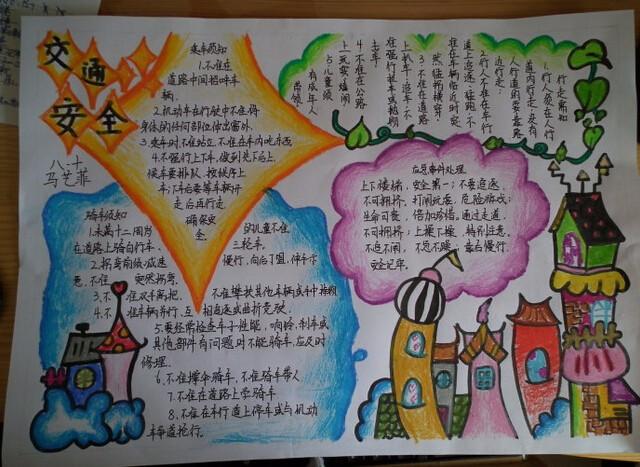 交通
安全
八、十
马艺菲
乘车须知
1.不准在
道路中间招呼车
辆。
2.机动车在行驶中不准将
身体的任何部位伸出窗外。
3.乘车时不准站立 不准在车内吃东西
4.不强行上下车，做到先下后上
候车要排队，按秩序上
车；下车后要等车辆开
走后再行走
确保安
全。
行走需知
1.行人须在人行
道内行走，没有
人行道的要靠路
边行走；
2.行人不准在车行
道上追逐、猛跑，不
准在车辆临近时突
然猛拐横穿。
3.不准在道路
上扒车、追车、不
准强行拦车或抛物
击车。
4.不准在公路
上玩耍嬉闹
5.儿童须
有成年人
带领
应急事件处理
上下楼梯，安全第一；不要追逐，
不可拥挤。打闹玩耍，危险游戏；
生命可贵，倍加珍惜。通过走道，
不可拥挤；上操下操，特别注意。
不追不闹，不急不躁；靠右慢行，
安全记牢。
骑车须知
1.未满十二周岁的儿童不准
在道路上骑自行车、三轮车。
2.拐弯前须减速慢行，向后了望，伸手示
意，不准突然拐弯。
3.不准双手离把，不准攀扶其他车辆或手中持物
4.不准车辆并行、互相追逐或曲折竞驶。
5.要经常检查车子性能，响铃、刹车或
其他部件有问题时不能骑车，应及时
修理。
6.不准撑伞骑车，不准骑车带人
7.不准在道路上学骑车
8.不准在车行道上停车或与机动
车争道抢行。